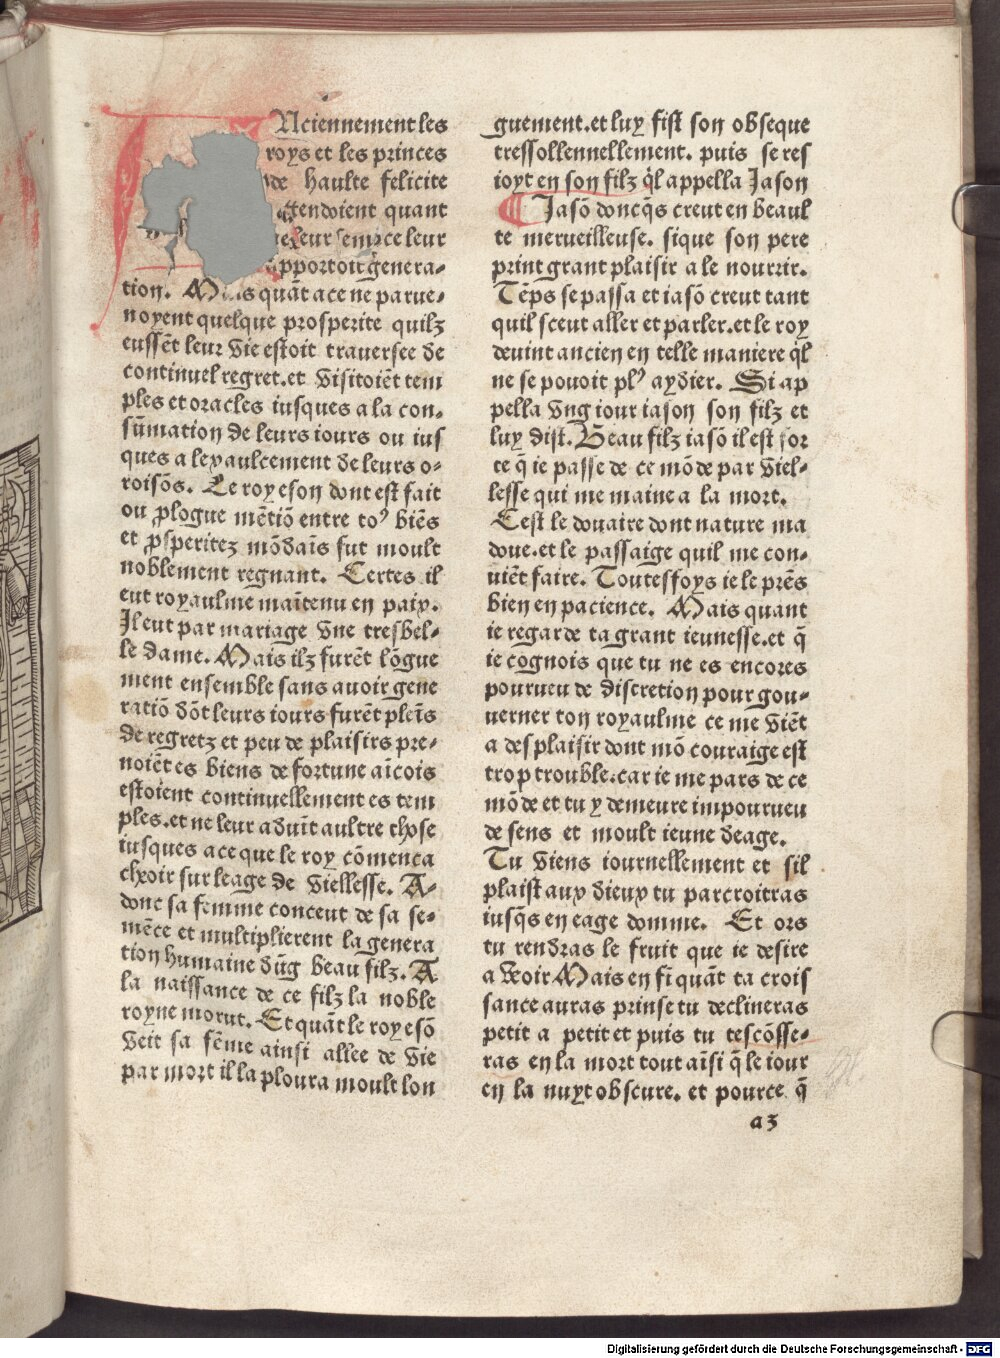 ANciennement les
roys et les princes
de haulte felicite
tendoient quant
leur semēce leur
apportoit genera-
tion. Mais quāt a ce ne parue-
noyent quelque prosperite quilz
eussēt leur vie estoit trauersee de
continuel regret. et visitoiēt tem
ples et oracles iusques a la con-
sūmation de leurs iours ou ius
ques a lexaulcement de leurs o-
roisōs. Le roy eson dont est fait
ou ꝓlogue mētiō entre toꝰ biēs
et ꝓsperitez mōdaīs fut moult
noblement regnant. Certes il
eut royaulme maītenu en paix.
Il eut par mariage vne tresbel-
le dame. Mais ilz furēt lōgue
ment ensemble sans auoir gene
ratiō dōt leurs iours furēt pleīs
de regretz et peu de plaisirs pre-
noiēt es biens de fortune aīcois
estoient continuellement es tem
ples. et ne leur aduīt aultre chose
iusques a ce que le roy cōmenca
cheoir sur leage de viellesse. A-
donc sa femme conceut de sa se-
mēce et multiplierent la genera
tion humaine dūg beau filz. A
la naissance de ce filz la noble
royne morut. Et quāt le roy esō
veit sa fēme ainsi allee de vie
par mort il la ploura moult lon
guement. et luy fist son obseque
tressollennellement. puis se res
ioyt en son filz q̄l appella Jason
¶ Jasō doncq̄s creut en beaul
te merueilleuse. sique son pere
print grant plaisir a le nourrir.
Tēps se passa et iasō creut tant
quil sceut aller et parler. et le roy
deuint ancien en telle maniere q̄l
ne se pouoit plꝰ aydier. Si ap
pella vng iour iason son filz et
luy dist. Beau filz iasō il est for
te q̄ ie passe de ce mōde par viel-
lesse qui me maine a la mort.
Cest le douaire dont nature ma
doue. et le passaige quil me con-
uiēt faire. Toutesfoys ie le prēs
bien en pacience. Mais quant
ie regarde ta grant ieunesse. et q̄
ie cognois que tu ne es encores
pourueu de discretion pour gou-
uerner ton royaulme ce me viēt
a desplaisir dont mō couraige est
trop trouble. car ie me pars de ce
mōde et tu y demeure impourueu
de sens et moult ieune deage.
Tu viens iournellement et sil
plaist aux dieux tu parcroitras
iusq̄s en eage domme. Et ors
tu rendras le fruit que ie desire
a veoir Mais en si quāt ta crois
sance auras prinse tu declineras
petit a petit et puis tu tescōsse-
ras en la mort tout aīsi q̄ le iour
en la nuyt obscure. et pource q̄
a3
Digitalisierung gefördert durch die Deutsche Forschungsgemeinschaft - DFG